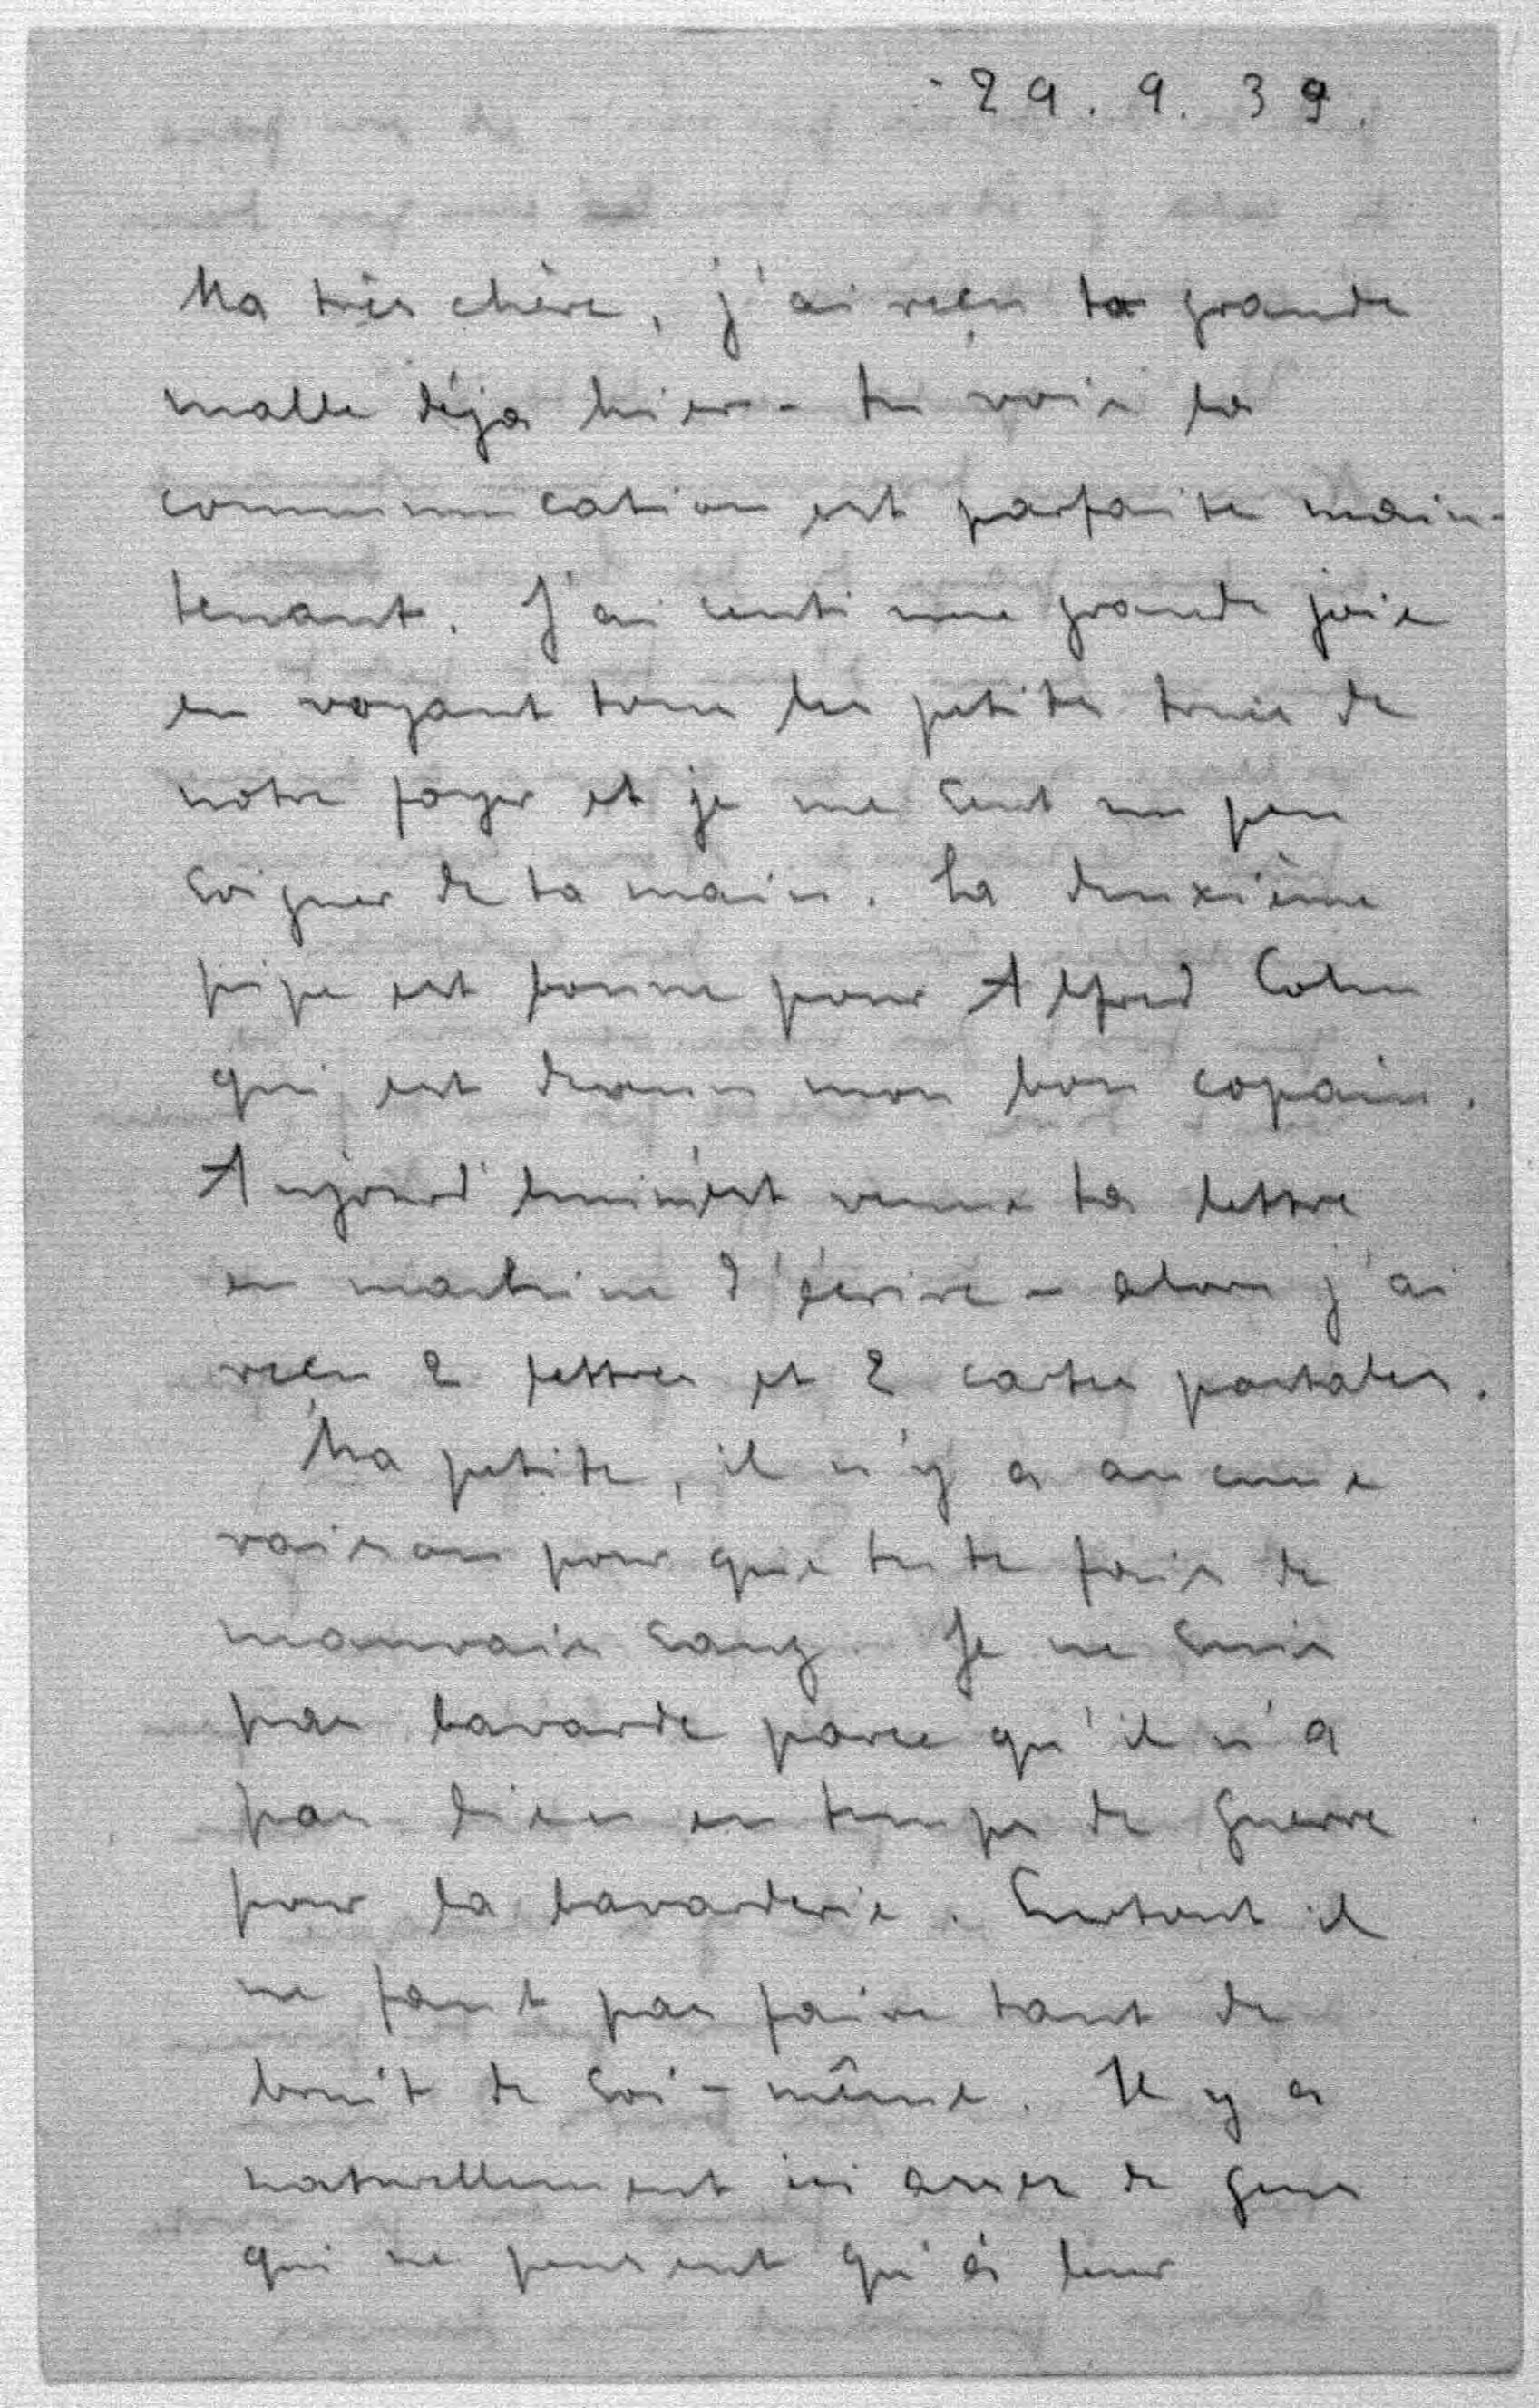 29.9.39.
Ma très chère, j'ai reçu ta grande
malle déjà hier - tu vois la
communication est parfaite main-
tenant. J'ai senti une grande joie
en voyant tous les petites trucs de
notre foyer et je me sent un peu
soigner de ta main. La deuxième
pipe est bonne pour Alfred Cohn
qui est devenu mon bon copain.
Aujourd'hui m'est venue ta lettre
en machine d'écrire - alors j'ai
reçu 2 lettres et 2 cartes postales.
Ma petite, il n'y a aucune
raison pour que tu te fais de
mauvais sang. Je ne suis
pas bavarde parce qu'il n'a
pas lieu en temps de guerre
pour la bavarderie. Surtout il
ne faut pas faire tant de
bruit de soi-même. Il y a
naturellement ici assez de gens
qui ne pensent qu'à leur